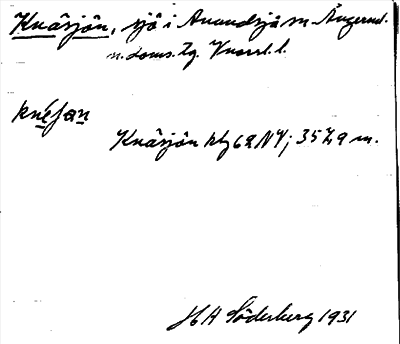 Knäsjön, sjö i Anundsjö sn Ångerml.
n. doms. Zg. Vnorrl. l.
knéʃan
Knäsjön kbg 62 NV; 357,9 m.
H A Söderberg 1931